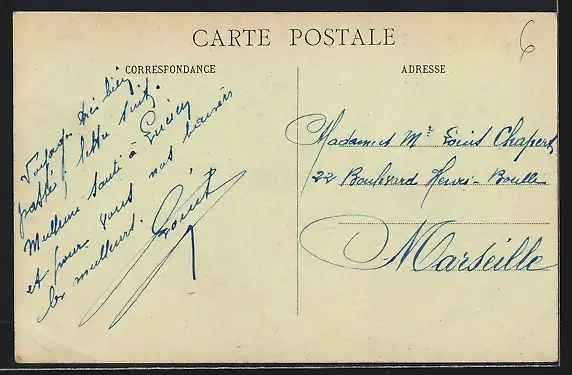 CARTE POSTALE
6
CORRESPONDANCE
ADRESSE
Voyage très bien
passé, lettre suit.
Meilleure santé à
et pour vous nos baisers
les meilleurs.
Louis
Madame et Mr Louis Chapert
22 Boulevard Henri
Marseille